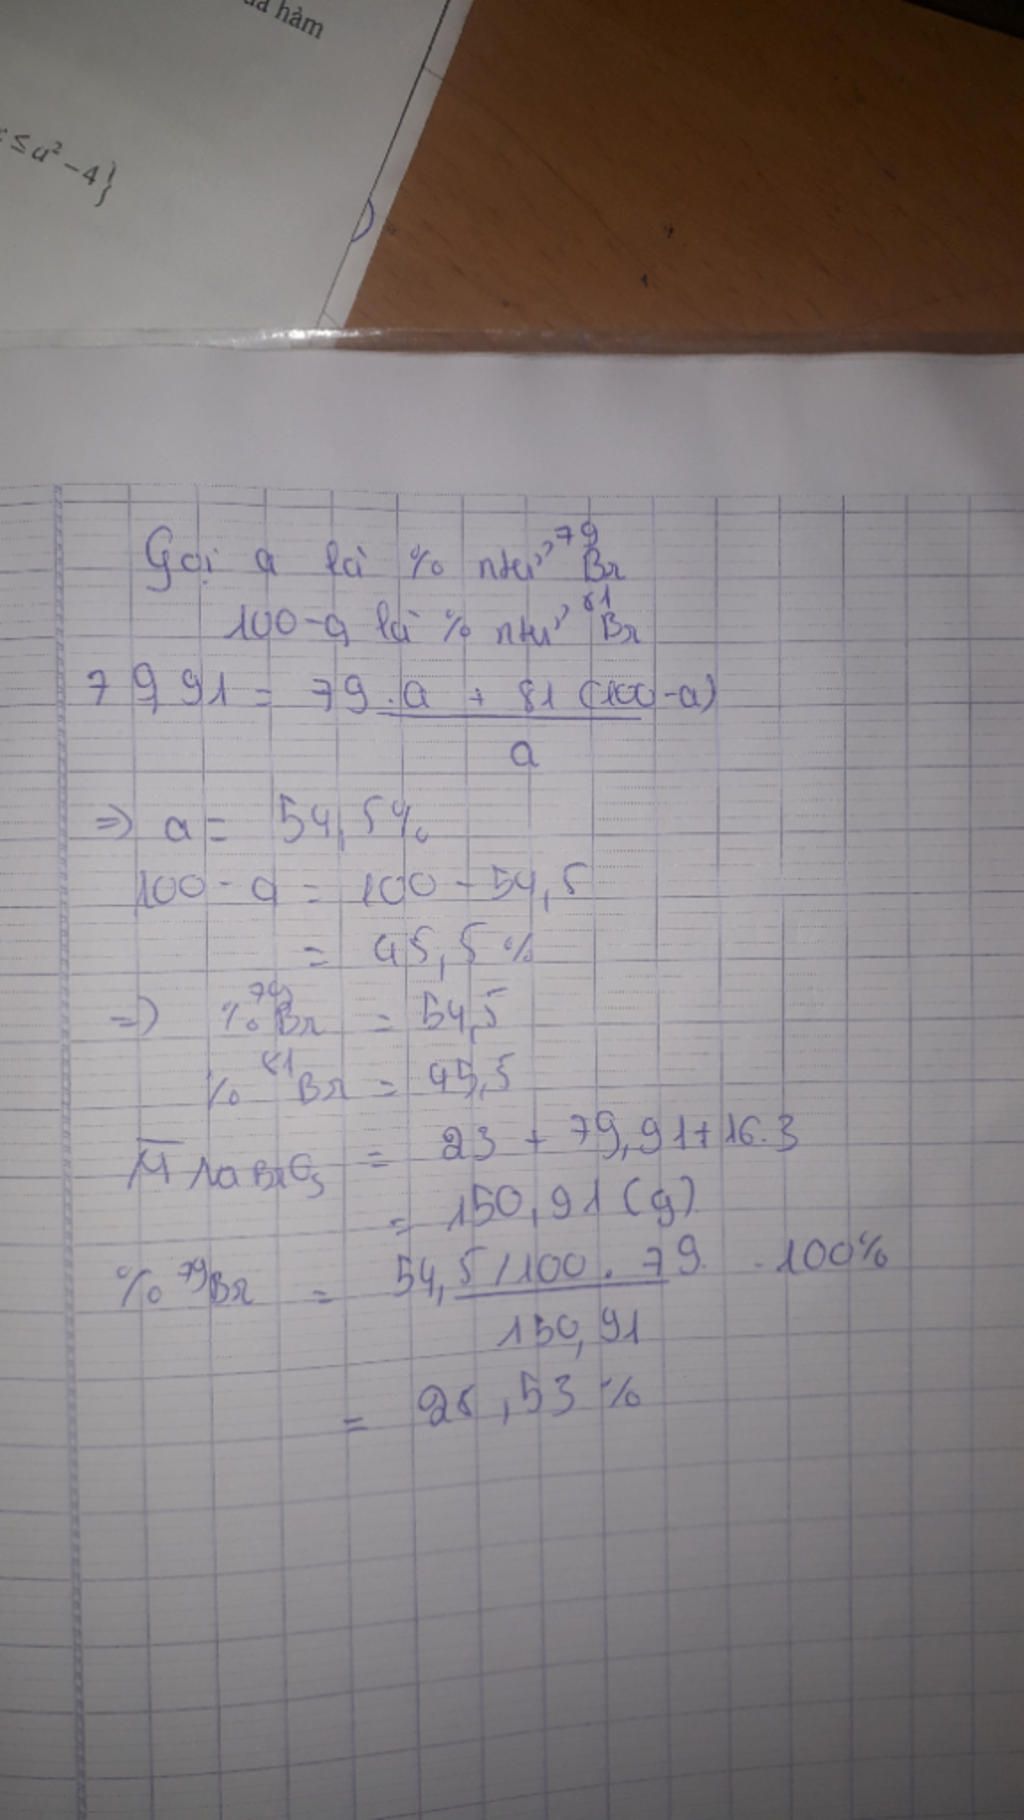 hàm
≤ a² - 4}
Gọi a là % ntử ⁷⁹Br
100-a là % ntử ⁸¹Br
79,91 = 79.a + 81(100-a)
a
=> a = 54,5%
100 - a = 100 - 54,5
= 45,5%
=> % ⁷⁹Br = 54,5
% ⁸¹Br = 45,5
M̅ NaBrO₃ = 23 + 79,91+16.3
= 150,91 (g)
% ⁷⁹Br = 54,5/100.79 .100%
150,91
= 28,53 %